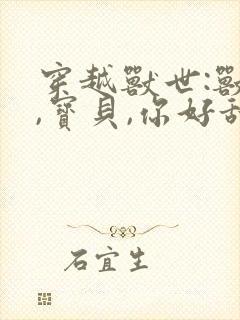 穿越獸世:獸
,寶貝,你好甜
石宜生